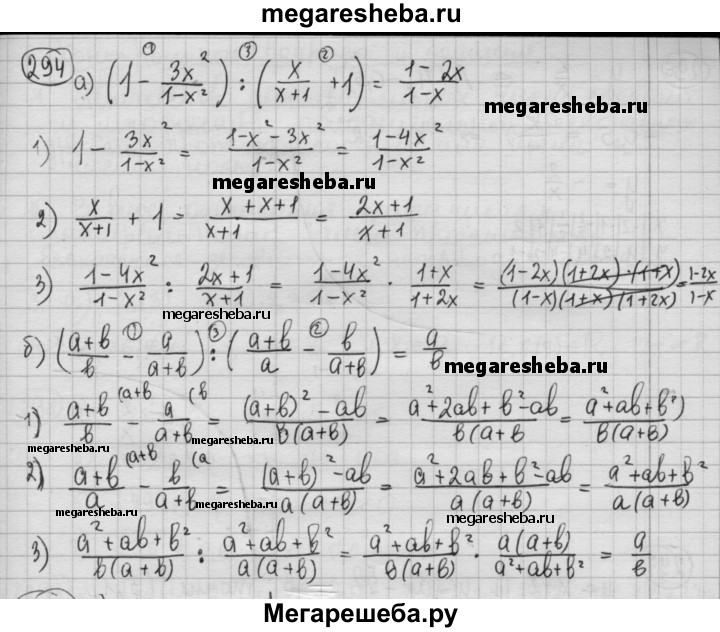 megaresheba.ru
294 а) (1 - 3x²/(1-x²)) : (x/(x+1) + 1) = (1-2x)/(1-x)
① ③ ②
megaresheba.ru
1) 1 - 3x²/(1-x²) = (1-x²-3x²)/(1-x²) = (1-4x²)/(1-x²)
megaresheba.ru
2) x/(x+1) + 1 = (x+x+1)/(x+1) = (2x+1)/(x+1)
3) (1-4x²)/(1-x²) : (2x+1)/(x+1) = (1-4x²)/(1-x²) · (1+x)/(1+2x) = (1-2x)(1+2x)·(1+x)/((1-x)(1+x)(1+2x)) = (1-2x)/(1-x)
megaresheba.ru
б) ((a+b)/b - a/(a+b)) : ((a+b)/a - b/(a+b)) = a/b
① ③ ②
megaresheba.ru
1) (a+b)/b (a+b - a/(a+b) (b = ((a+b)²-ab)/(b(a+b)) = (a²+2ab+b²-ab)/(b(a+b) = (a²+ab+b²)/(b(a+b))
megaresheba.ru megaresheba.ru
2) (a+b)/a (a+b - b/(a+b) (a = ((a+b)²-ab)/(a(a+b)) = (a²+2ab+b²-ab)/(a(a+b)) = (a²+ab+b²)/(a(a+b))
megaresheba.ru megaresheba.ru megaresheba.ru
3) (a²+ab+b²)/(b(a+b)) : (a²+ab+b²)/(a(a+b)) = (a²+ab+b²)/(b(a+b)) · a(a+b)/(a²+ab+b²) = a/b
Мегарешеба.ру